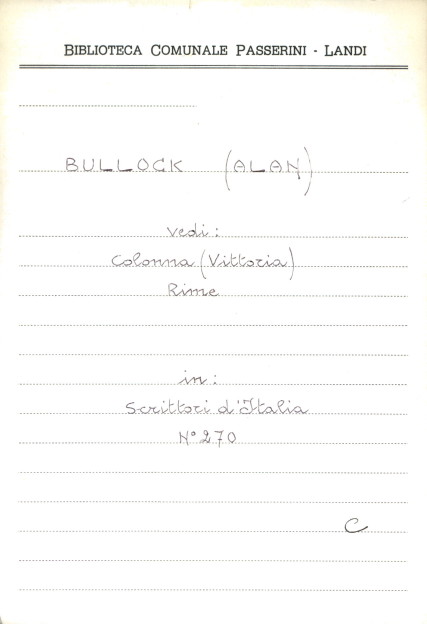 BIBLIOTECA COMUNALE PASSERINI - LANDI
BULLOCK (ALAN)
vedi:
Colonna (Vittoria)
Rime
in:
Scrittori d'Italia
N° 270
C